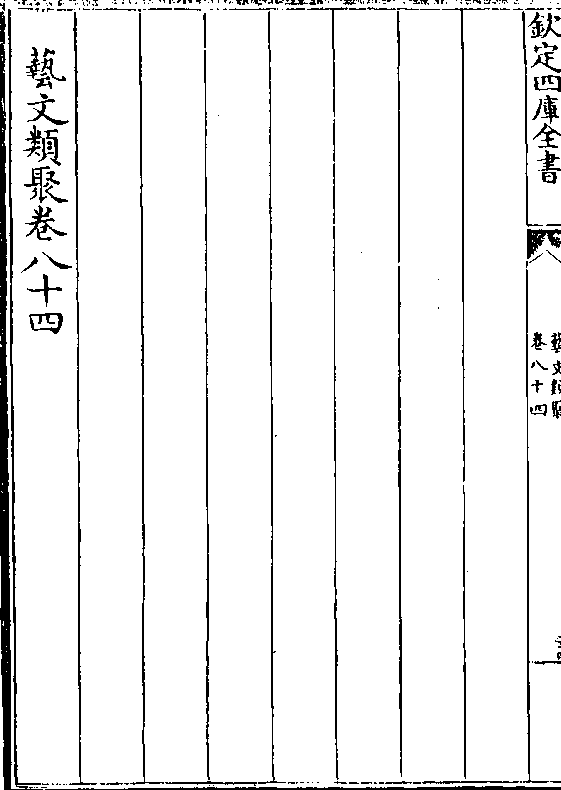 欽定四庫全書
藝文類聚
卷八十四
藝文類聚卷八十四